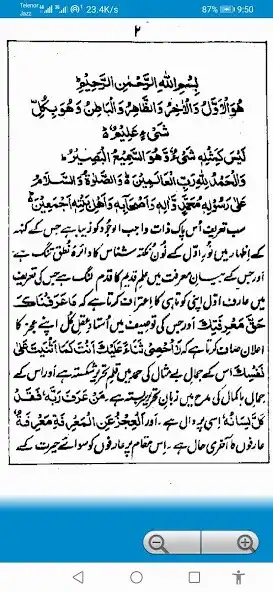 Telenor
Jazz
23.4K/s
87%
9:50
۲
بِسْمِ اللهِ الرَّحْمٰنِ الرَّحِيْمِ
هُوَ الْاَوَّلُ وَالْاٰخِرُ وَالظَّاهِرُ وَالْبَاطِنُ وَهُوَ بِكُلِّ
شَیْءٍ عَلِيْمٌ
لَيْسَ كَمِثْلِهٖ شَیْءٌ وَهُوَ السَّمِيْعُ الْبَصِيْرُ
وَالْحَمْدُ لِلّٰهِ رَبِّ الْعَالَمِيْنَ وَالصَّلٰوةُ وَالسَّلَامُ
عَلٰى رَسُوْلِهٖ مُحَمَّدٍ وَّاٰلِهٖ وَاَصْحَابِهٖ وَاَهْلِ بَيْتِهٖ اَجْمَعِيْنَ
سب تعریف اُس پاک ذات واجب الوجود کو زیبا ہے جس کے کنہ
کے اظہار میں نورِ اوّل کے نُونِ نکتہ شناس کا دائرہ نطق تنگ ہے
اور جس کے میدانِ معرفت میں علمِ قدیم کا قدم لنگ ہے جس کی تعریف
میں عارفِ اوّل اپنی کوتاہی کا اعتراف کرتا ہے کہ مَا عَرَفْنَاكَ
حَقَّ مَعْرِفَتِكَ اور جس کی توصیف میں اُستادِ عقلِ کل اپنے عجز کا
اعلان صاف کرتا ہے کہ لَا اُحْصِیْ ثَنَاءً عَلَيْكَ اَنْتَ كَمَا اَثْنَيْتَ عَلٰى
نَفْسِكَ اس کے جمالِ بے مثال کی حمد میں قلم تحریر شکستہ ہے اور اس کے
جمال باکمال کی مدح میں زبانِ تحریر بستہ ہے۔ مَنْ عَرَفَ رَبَّهٗ فَقَدْ
كَلَّ لِسَانُهٗ اسی پر دال ہے۔ اور اَلْعِجْزُ عَنِ الْمَعْرِفَةِ مَعْرِفَةٌ
عارفوں کا آخری حال ہے۔ اس مقام پر عارفوں کو سوائے حیرت کے